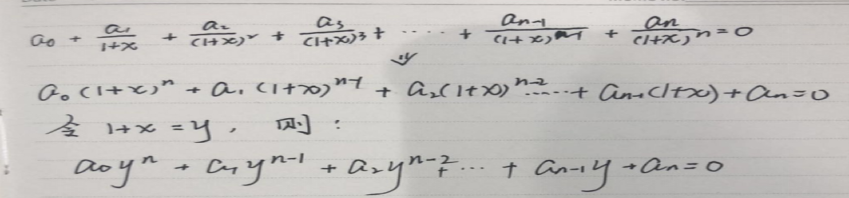 a₀ + a₁/(1+x) + a₂/(1+x)² + a₃/(1+x)³ + ···· + aₙ₋₁/(1+x)ⁿ⁻¹ + aₙ/(1+x)ⁿ = 0
⇓
a₀(1+x)ⁿ + a₁(1+x)ⁿ⁻¹ + a₂(1+x)ⁿ⁻² ····· + aₙ₋₁(1+x) + aₙ = 0
令 1+x = y, 则:
a₀yⁿ + a₁yⁿ⁻¹ + a₂yⁿ⁻² + ··· + aₙ₋₁y + aₙ = 0